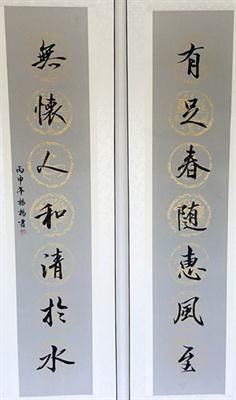 有足春随惠風至
無懷人和清於水
丙申年楊楊書